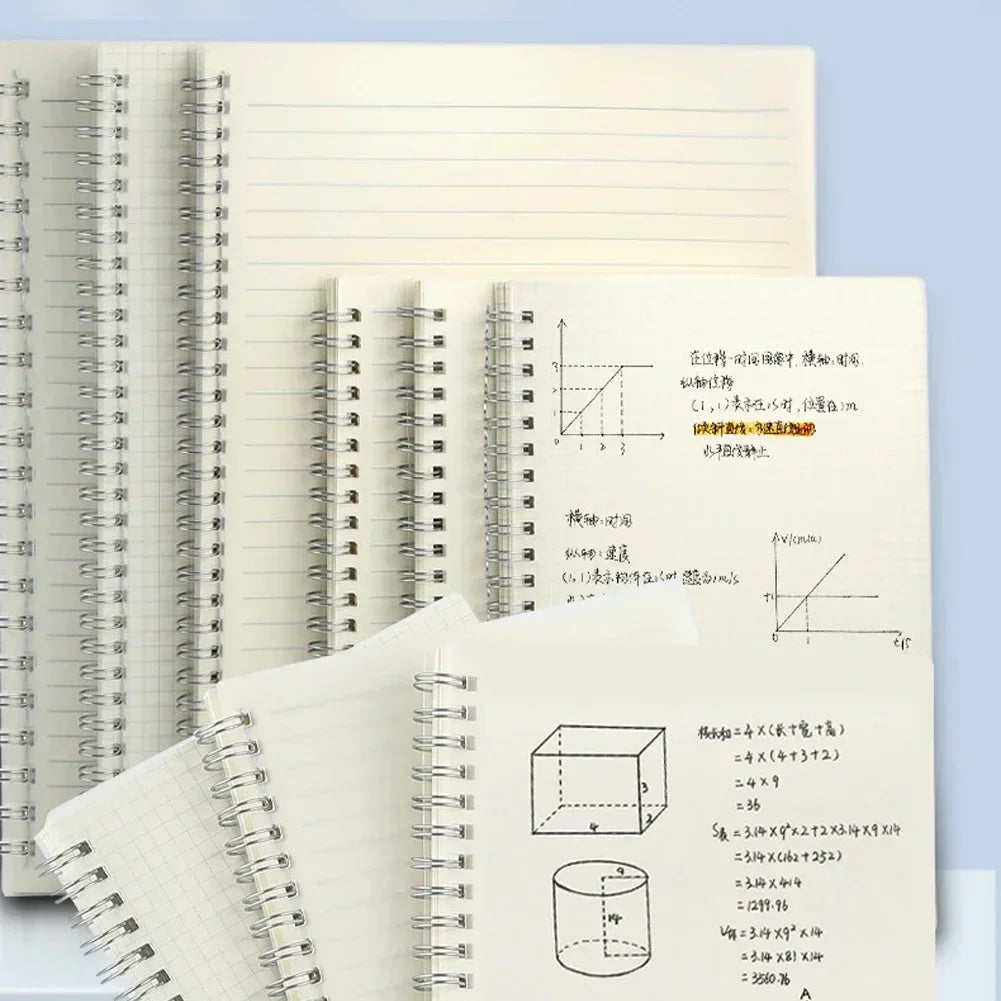 3
2
1
0
1
2
3
在位移-时间图像中,横轴:时间.
纵轴位移
(1,1)表示在1s时,位置在1m
倾斜直线:匀速直线运动
水平直线静止
横轴:时间
纵轴:速度
(1,1)表示物体在1s时速度为1m/s
V/(m/s)
+1
0
1
t/s
棱长和=4×(长+宽+高)
=4×(4+3+2)
=4×9
=36
3
2
4
S表=3.14×9²×2+2×3.14×9×14
=3.14×(162+252)
=3.14×414
=1299.96
9
14
V体=3.14×9²×14
=3.14×81×14
=3560.76
A